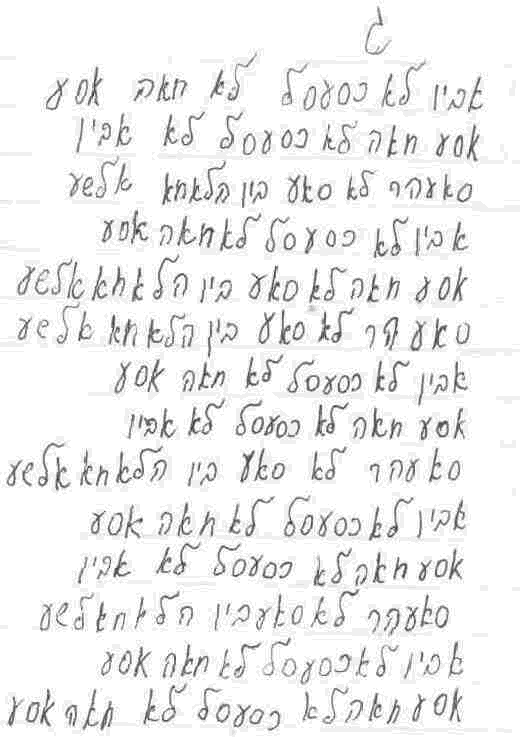 ג
אבין לא כסעסל לא חאה אסע
אסע חאה לא כסעסל לא אבין
סאעהר לא סאע בין הלאחא אלשע
אבין לא כסעסל לא חאה אסע
אסע חאה לא סאע בין הלאחא אלשע
סאעהר לא סאע בין הלאחא אלשע
אבין לא כסעסל לא חאה אסע
אסע חאה לא כסעסל לא אבין
סאעהר לא סאע בין הלאחא אלשע
אבין לא כסעסל לא חאה אסע
אסע חאה לא כסעסל לא אבין
סאעהר לא סאע בין הלאחא אלשע
אבין לא כסעסל לא חאה אסע
אסע חאה לא כסעסל לא חאה אסע